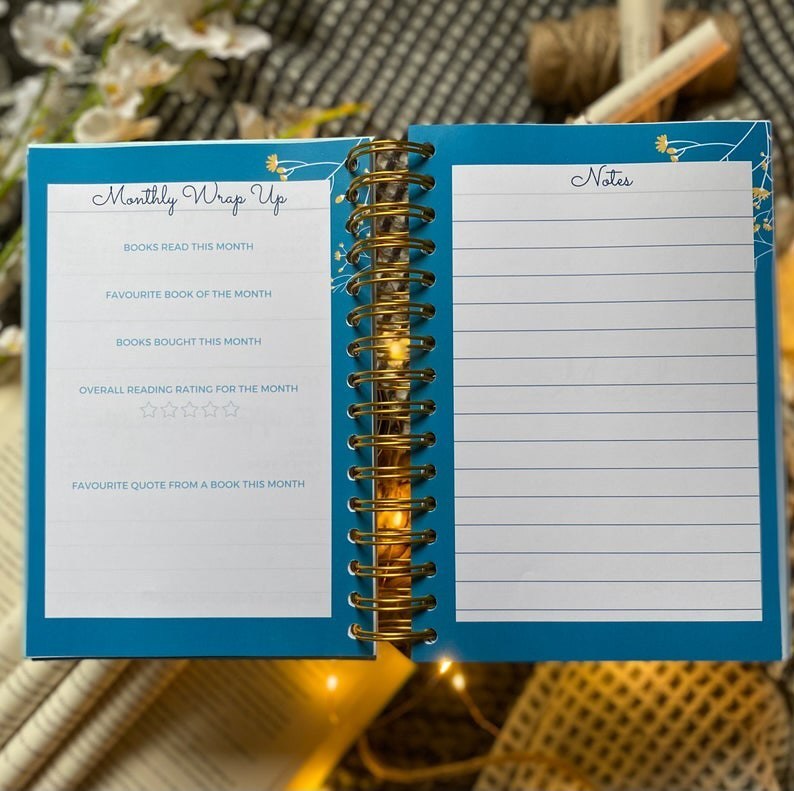 Monthly Wrap Up
BOOKS READ THIS MONTH
FAVOURITE BOOK OF THE MONTH
BOOKS BOUGHT THIS MONTH
OVERALL READING RATING FOR THE MONTH
FAVOURITE QUOTE FROM A BOOK THIS MONTH
Notes